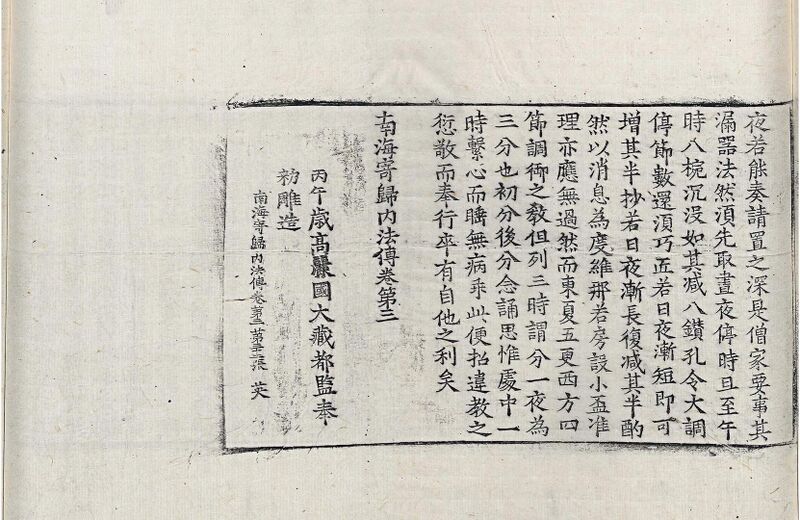 夜若能奏請置之深是僧家要事其
漏器法然湏先取晝夜停時旦至午
時八椀沉没如其减八鑚孔令大調
停節數還湏巧匠若日夜漸短即可
增其半抄若日夜漸長復减其半酌
然以消息為度維那若房設小盃准
理亦應無過然而東夏五更西方四
節調御之教但列三時謂分一夜為
三分也初分後分念誦思惟處中一
時繫心而睡無病乖此便招違教之
愆敬而奉行卒有自他之利矣
南海寄歸内法傳卷第三
丙午歳高麗國大藏都監奉
勑雕造
南海寄歸内法傳卷第三 第 張 英